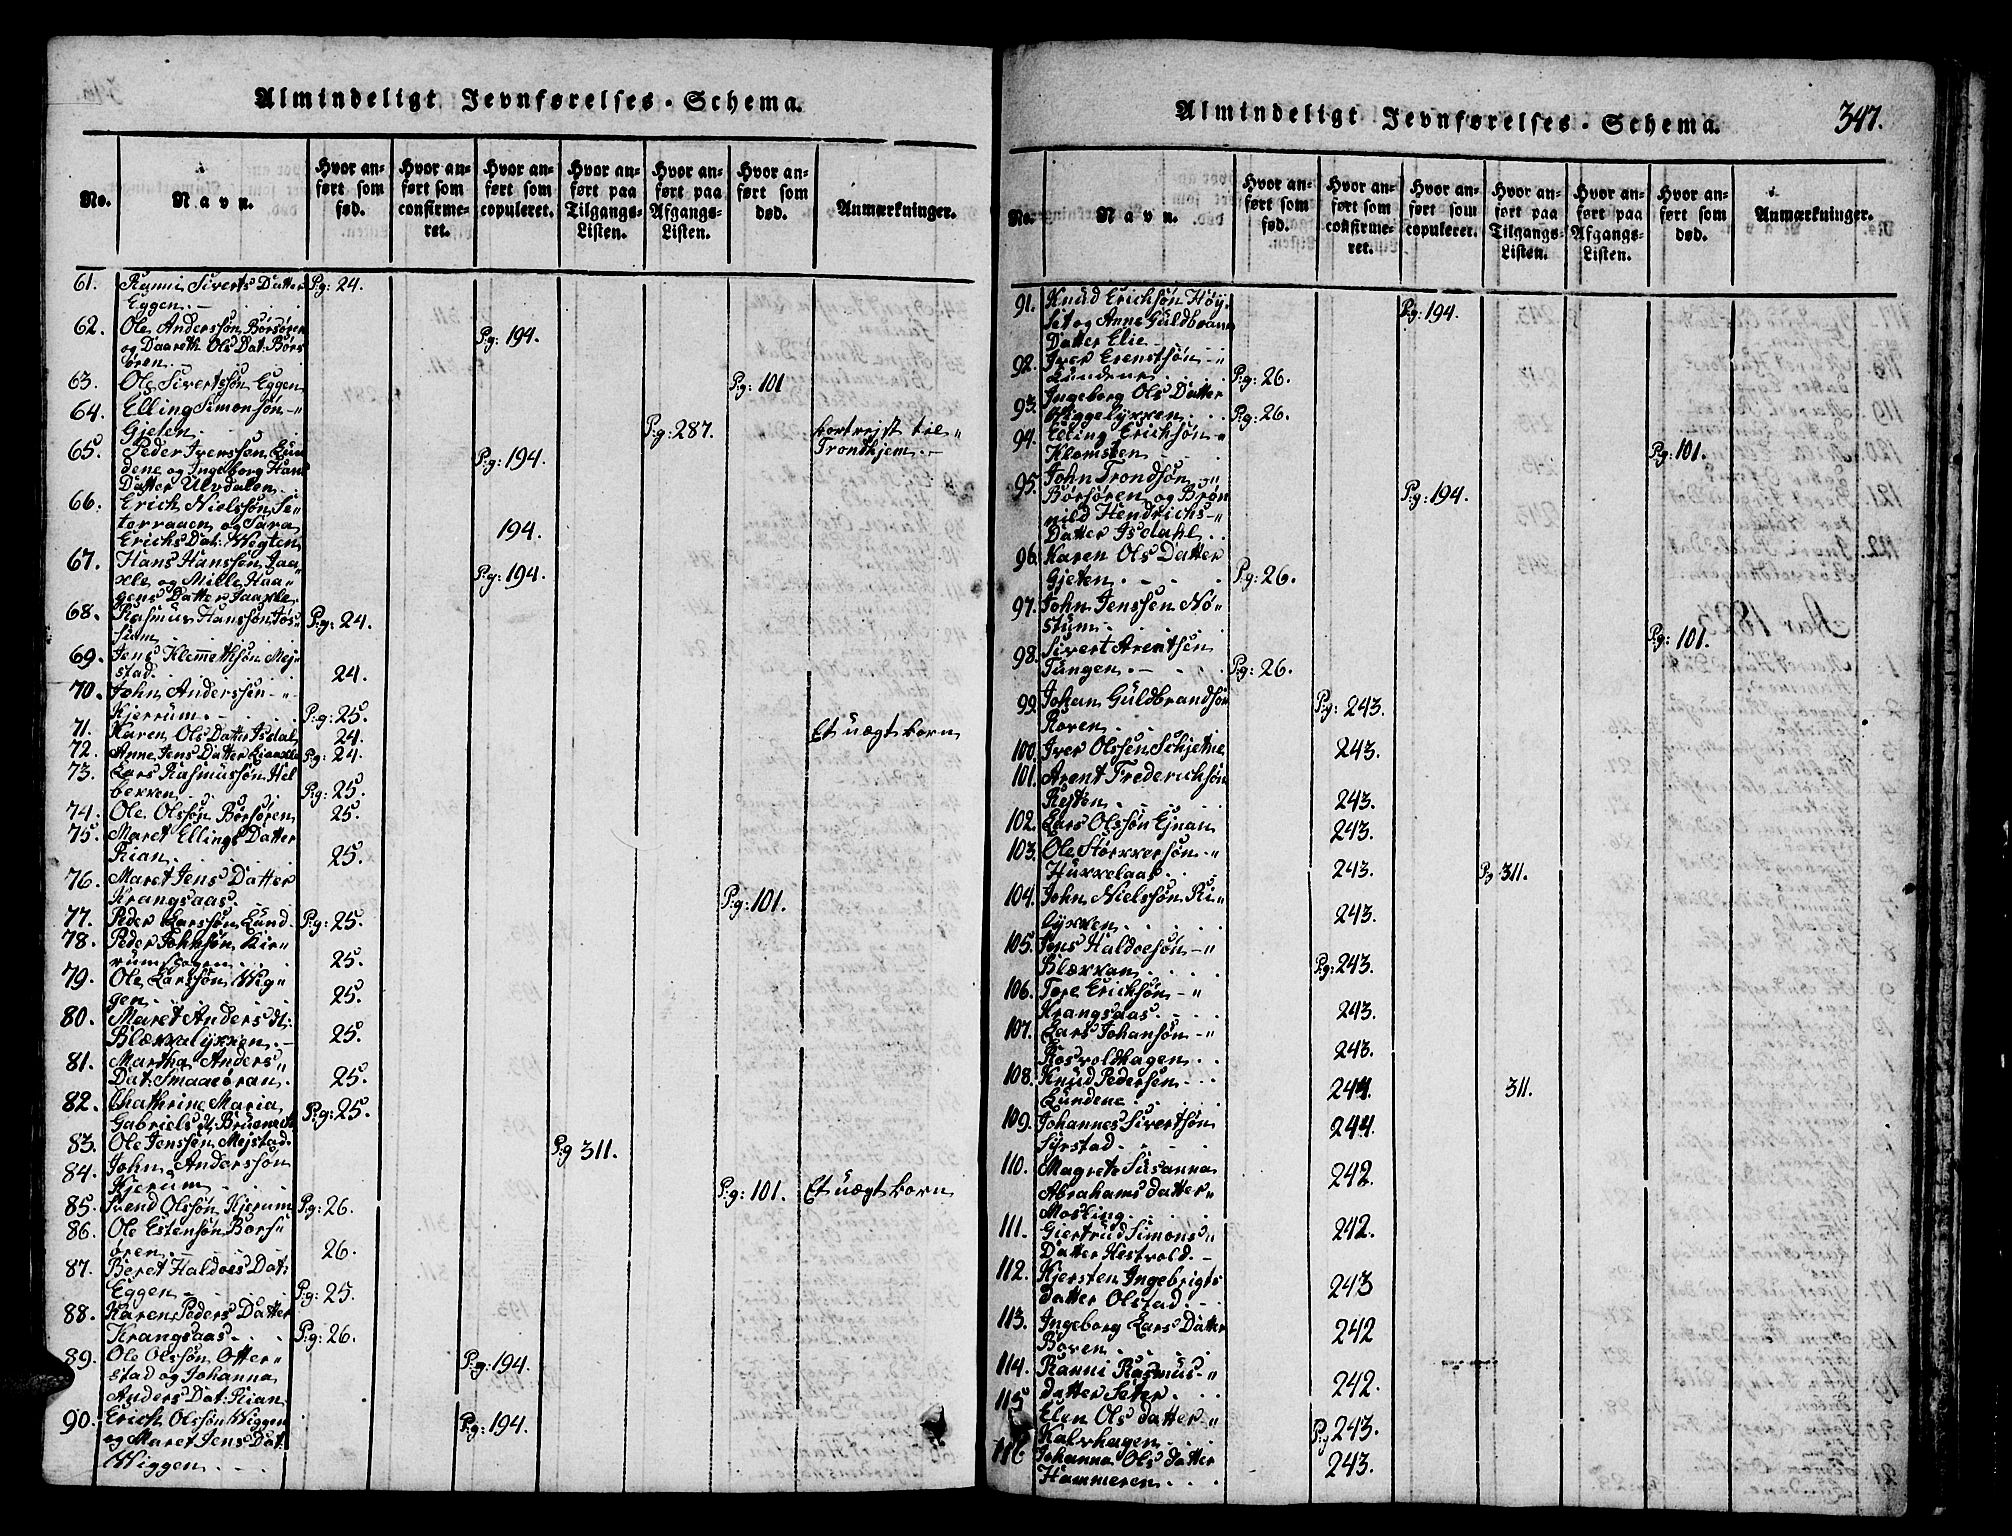 Almindeligt Jevnførelses-Schema.
No.
Navn.
Hvor anført som fød.
Hvor anført som confirmeret.
Hvor anført som copuleret.
Hvor anført paa Tilgangs-Listen.
Hvor anført paa Afgangs-Listen.
Hvor anført som død.
Anmærkninger.
61. Ranni Siverts Datter P:g: 24.
Eggen.
62. Ole Anderssøn Borsøren P:g: 194.
og Daareth Ols Dat: Børs
øren
63. Ole Sivertssøn Eggen P:g: 101
64. Elling Simonsøn
Gjeten. P:g: 287. bortrejst til
Trondhjem.
65. Peder Iverssøn Lun P:g: 194.
dene og Ingeborg Hans
Datter Ulvdalen
66. Erich Nielssøn Se-
terraaen og Sara 194.
Erichs Dat: Wigten
67. Hans Hanssøn Jaa
xle og Mille Haa P:g: 194.
gens Datter Jaaxle.
68. Rasmus Hanssøn Jøs P:g: 24.
sum
69. Jens Klemmetsøn Mej
stad. 24.
70. John Anderssøn
Kjerrum. P:g: 25.
71. Karen Ols Datter Isdal 24. Et uægt barn
72. Anne Jens Datter Liaaxle P:g: 24.
73. Lars Rasmussøn Hel
bekken P:g: 25.
74. Ole Olssøn Børsøren 25.
75. Maret Ellings Datter
Rian. 25.
76. Maret Jens Datter
Krangsaas. P:g: 101.
77. Peder Larssøn Lund P:g: 25.
78. Peder Johnsøn Kir-
rumshagen 25.
79. Ole Larssøn Wig
gen. 25.
80. Maret Anders dt:
Blækkalykken. 25.
81. Martha Anders
Dat. Smaaeøran. 25.
82. Chathrine Maria
Gabriels dt. Bruenet P:g: 25.
83. Ole Jenssøn Mejstad. P:g 311.
84. John Anderssøn
Kjerum P:g: 101. Et uægt barn
85. Svend Olssøn Kjerum P:g: 26.
86. Ole Estensøn Børs
øren. 26.
87. Beret Haldoes Dat:
Eggen P:g: 25.
88. Karen Peders Datter
Krangsaas. P:g: 26.
89. Ole Olssøn Otter P:g: 194.
stad og Johanna
Anders Dat. Rian.
90. Erich Olssøn Wiggen P:g: 194.
og Maret Jens Dat
Wiggen
Almindeligt Jevnførelses-Schema. 347.
No.
Navn.
Hvor anført som fød.
Hvor anført som confirmeret.
Hvor anført som copuleret.
Hvor anført paa Tilgangs-Listen.
Hvor anført paa Afgangs-Listen.
Hvor anført som død.
Anmærkninger.
91. Knud Erichsøn Høy P:g: 194.
set og Anne Guldbrans
Datter Elie
92. Iver Erenstsøn
Lundene P:g: 26.
93. Ingeborg Ols Datter
Wiggelykken P:g: 26.
94. Elling Erichsøn
Klomsten P:g: 101.
95. John Trondsøn
Børsøren og Brøn P:g: 194.
nild Hendrichs
Datter Isdahl
96. Karen Ols Datter
Gjeten P:g: 26.
97. John Jenssøn No
stum P:g: 101.
98. Sivert Arentsen
Tungen. P:g: 26.
99. Johan Guldbrandsøn P:g: 243.
Roven
100. Iver Olssen Schjetne 243.
101. Arent Frederichsøn
Resten 243.
102. Lars Olssøn Ejnan 243.
103. Ole Størkkersøn
Hukkelaas 243. P:g 311.
104. John Nielssøn Ri-
lykken 243.
105. Jens Haldoesøn
Blækkan P:g: 243.
106. Tore Erichsøn
Krangsaas 243.
107. Lars Johansøn
Rosvoldhagen 243.
108. Knud Pedersen 244. 311.
Lundene
109. Johannes Sivertsøn 244.
Syrstad
110. Magrete Susanna
Abrahams datter 242.
Mosling
111. Giertrud Simons 242.
Datter Hestvold.
112. Kjersten Ingebrigts
datter Olstad 243
113. Ingeborg Lars Datter 242
Boren
114. Ranni Rasmus
datter Seter 242.
115 Elen Ols datter
Kalvhagen P:g 243.
116 Johanna Ols datter 243.
Hammeren